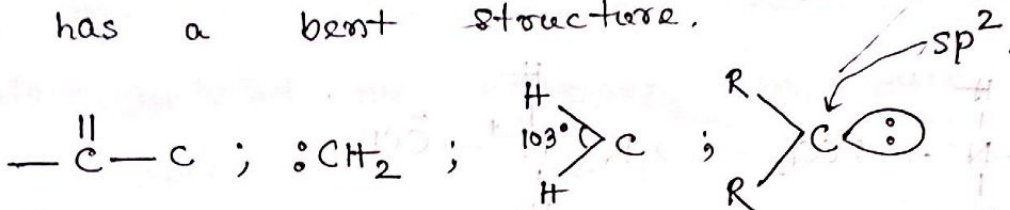 has a bent structure.
sp²
— C̈ — C ; :CH₂ ; H 103° H C ; R R C :